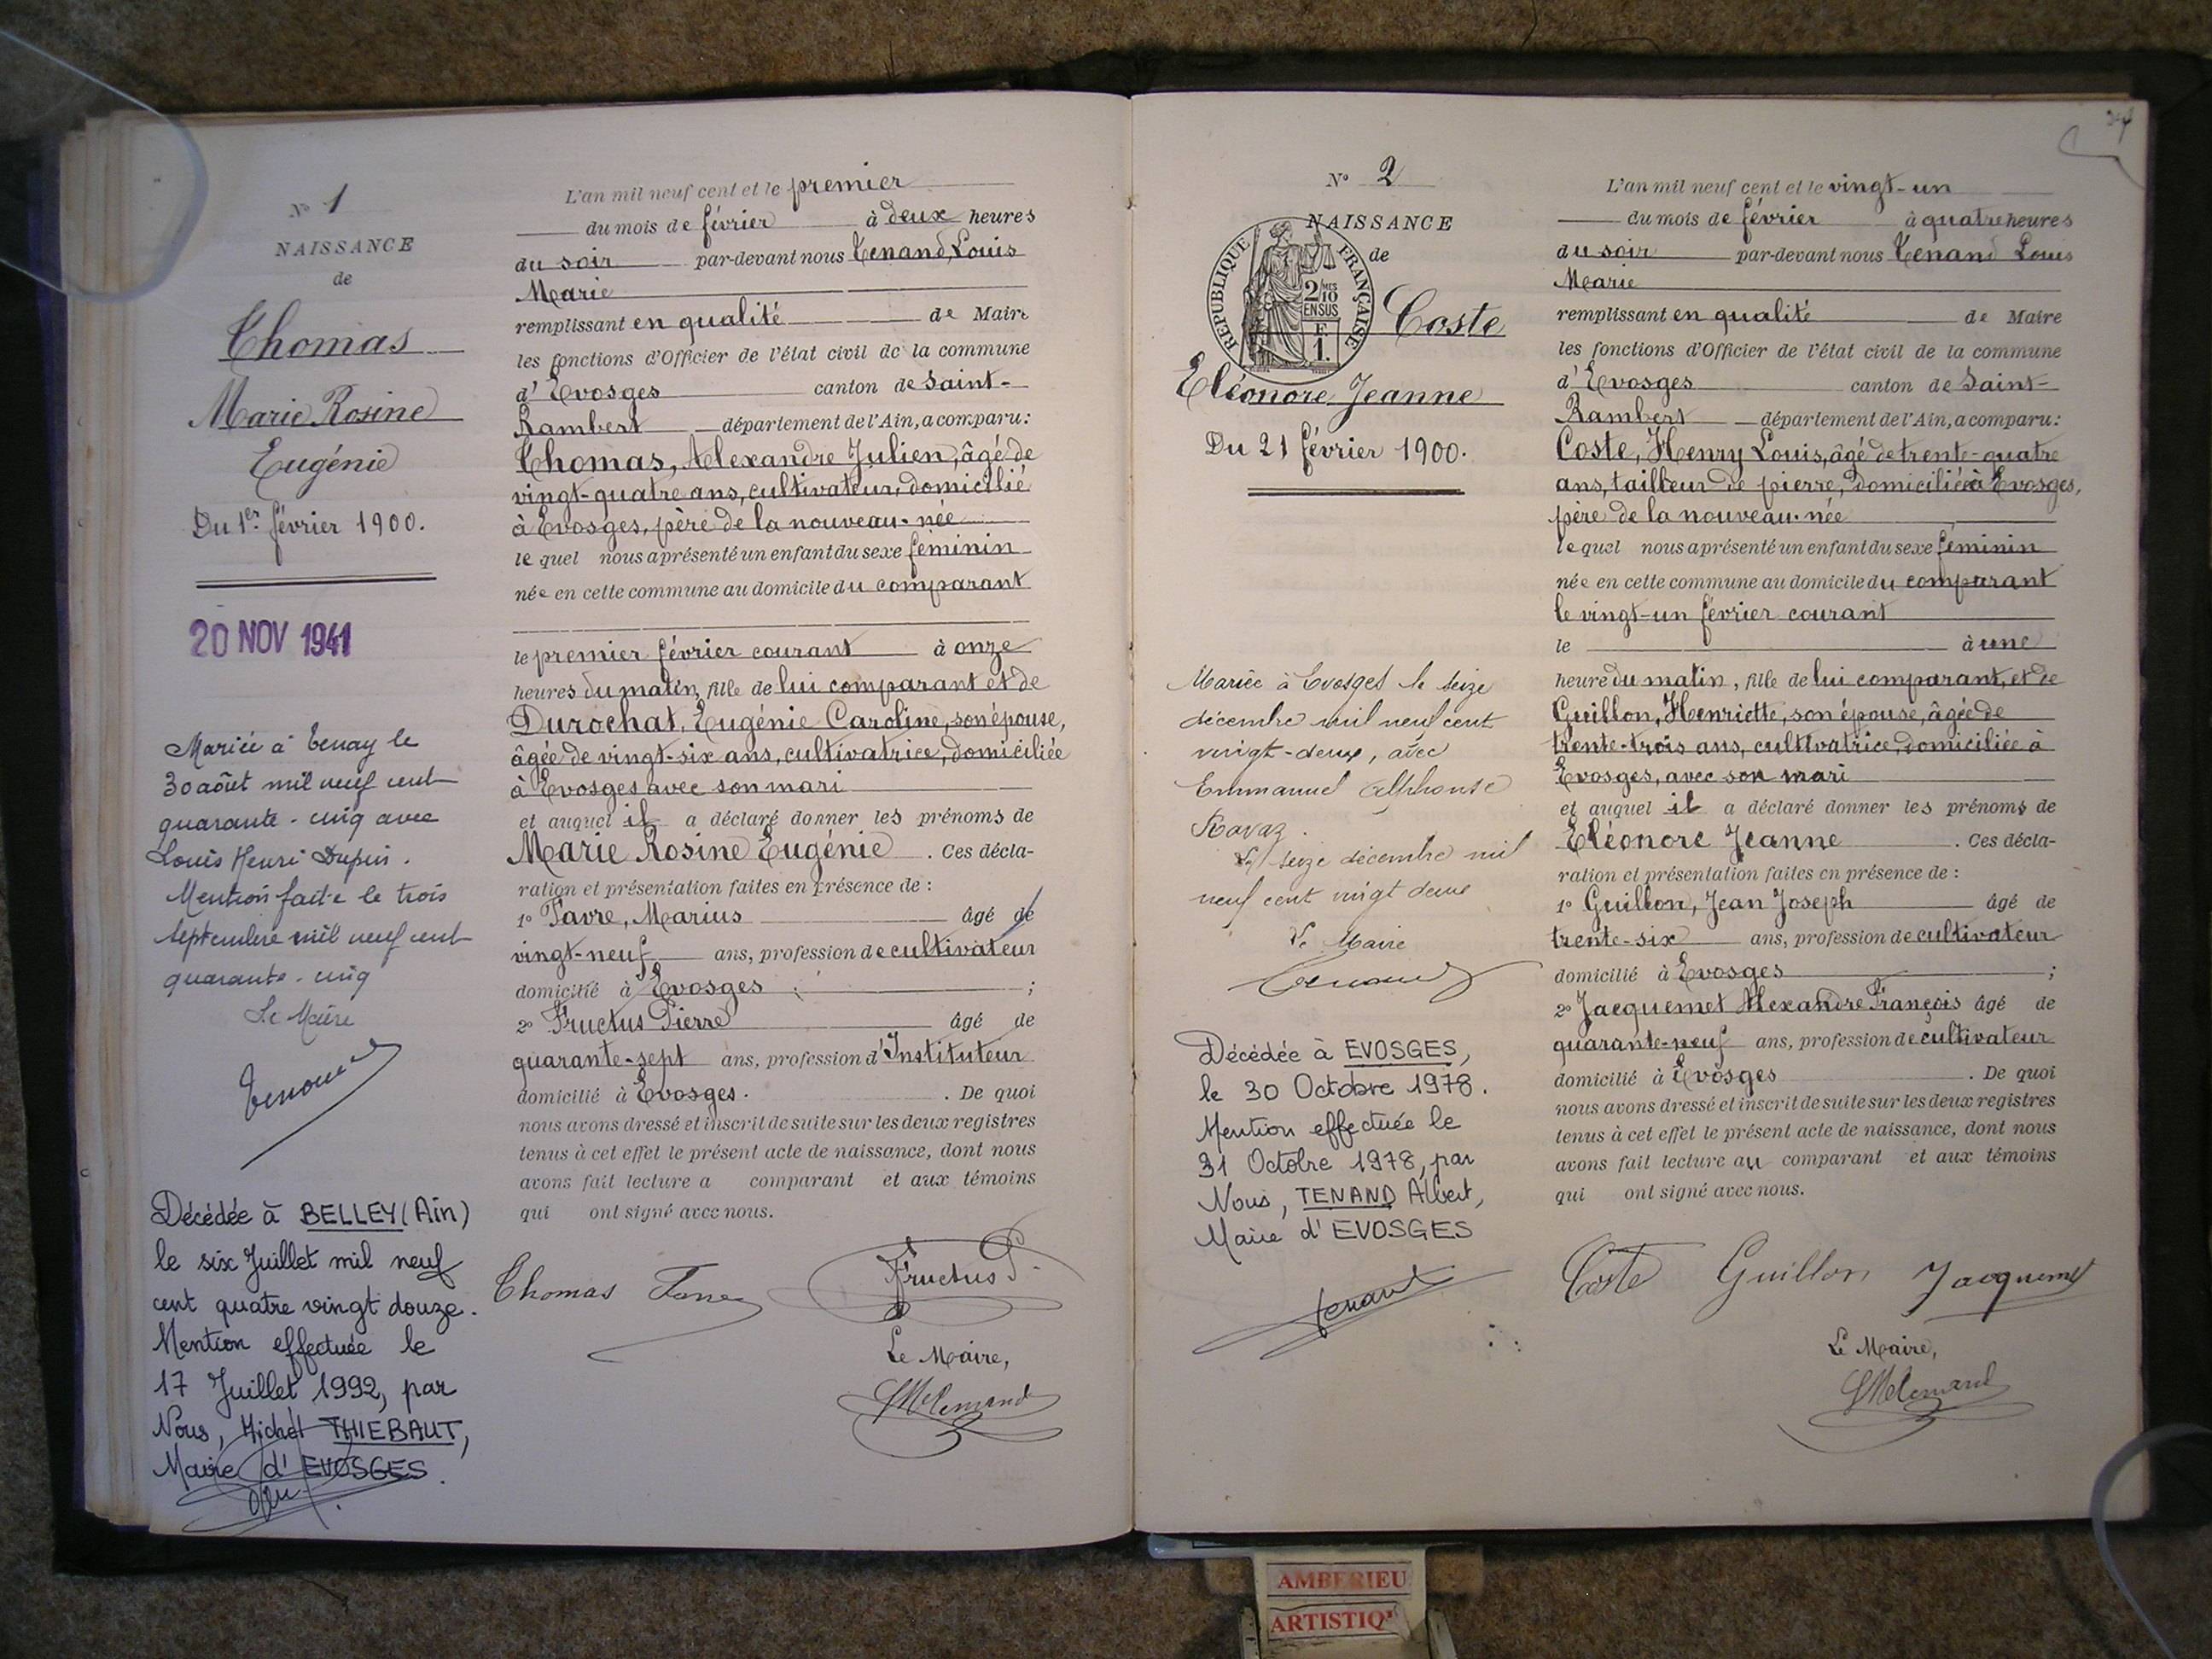 N° 1
NAISSANCE
de
Thomas
Marie Rosine
Eugénie
Du 1er février 1900.
20 NOV 1941
Mariée à Tenay le
30 août mil neuf cent
quarante-cinq avec
Louis Henri Dupin.
Mention faite le trois
septembre mil neuf cent
quarante-cinq
Le Maire
Décédée à BELLEY (Ain)
le six Juillet mil neuf
cent quatre vingt douze.
Mention effectuée le
17 Juillet 1992, par
Nous, Michel THIEBAUT,
Maire d'EVOSGES.
L'an mil neuf cent et le premier
du mois de février à deux heures
du soir par-devant nous Tenand, Louis
Marie
remplissant en qualité de Maire
les fonctions d'Officier de l'état civil de la commune
d'Evosges canton de Saint-
Rambert département de l'Ain, a comparu:
Thomas, Alexandre Julien, âgé de
vingt-quatre ans, cultivateur, domicilié
à Evosges, père de la nouveau-née
lequel nous a présenté un enfant du sexe féminin
née en cette commune au domicile du comparant
le premier février courant à onze
heures du matin, fille de lui comparant et de
Durochat, Eugénie Caroline, son épouse,
âgée de vingt-six ans, cultivatrice, domiciliée
à Evosges avec son mari
et auquel il a déclaré donner les prénoms de
Marie Rosine Eugénie. Ces décla-
ration et présentation faites en présence de :
1° Favre, Marius âgé de
vingt-neuf ans, profession de cultivateur
domicilié à Evosges ;
2° Fructus Pierre âgé de
quarante-sept ans, profession d'Instituteur
domicilié à Evosges. De quoi
nous avons dressé et inscrit de suite sur les deux registres
tenus à cet effet le présent acte de naissance, dont nous
avons fait lecture a comparant et aux témoins
qui ont signé avec nous.
Thomas Favre Fructus P.
Le Maire,
N° 2
NAISSANCE
de
REPUBLIQUE FRANÇAISE
2/10 MES
EN SUS
F.
1.
Coste
Eléonore Jeanne
Du 21 février 1900.
Mariée à Evosges le seize
décembre mil neuf cent
vingt-deux, avec
Emmanuel Alphonse
Ravaz.
Le seize décembre mil
neuf cent vingt deux
Le Maire
Tenand
Décédée à EVOSGES,
le 30 Octobre 1978.
Mention effectuée le
31 Octobre 1978, par
Nous, TENAND Albert,
Maire d'EVOSGES
Tenand
L'an mil neuf cent et le vingt-un
du mois de février à quatre heures
du soir par-devant nous Tenand Louis
Marie
remplissant en qualité de Maire
les fonctions d'Officier de l'état civil de la commune
d'Evosges canton de Saint-
Rambert département de l'Ain, a comparu:
Coste, Henry Louis, âgé de trente-quatre
ans, tailleur de pierre, domicilié à Evosges,
père de la nouveau-née
lequel nous a présenté un enfant du sexe féminin
née en cette commune au domicile du comparant
le vingt-un février courant
le à une
heure du matin, fille de lui comparant, et de
Guillon, Henriette, son épouse, âgée de
trente-trois ans, cultivatrice, domiciliée à
Evosges, avec son mari
et auquel il a déclaré donner les prénoms de
Eléonore Jeanne. Ces décla-
ration et présentation faites en présence de :
1° Guillon, Jean Joseph âgé de
trente-six ans, profession de cultivateur
domicilié à Evosges ;
2° Jacquemet Alexandre François âgé de
quarante-neuf ans, profession de cultivateur
domicilié à Evosges. De quoi
nous avons dressé et inscrit de suite sur les deux registres
tenus à cet effet le présent acte de naissance, dont nous
avons fait lecture au comparant et aux témoins
qui ont signé avec nous.
Coste Guillon Jacquemet
Le Maire,
AMBERIEU
ARTISTIQ